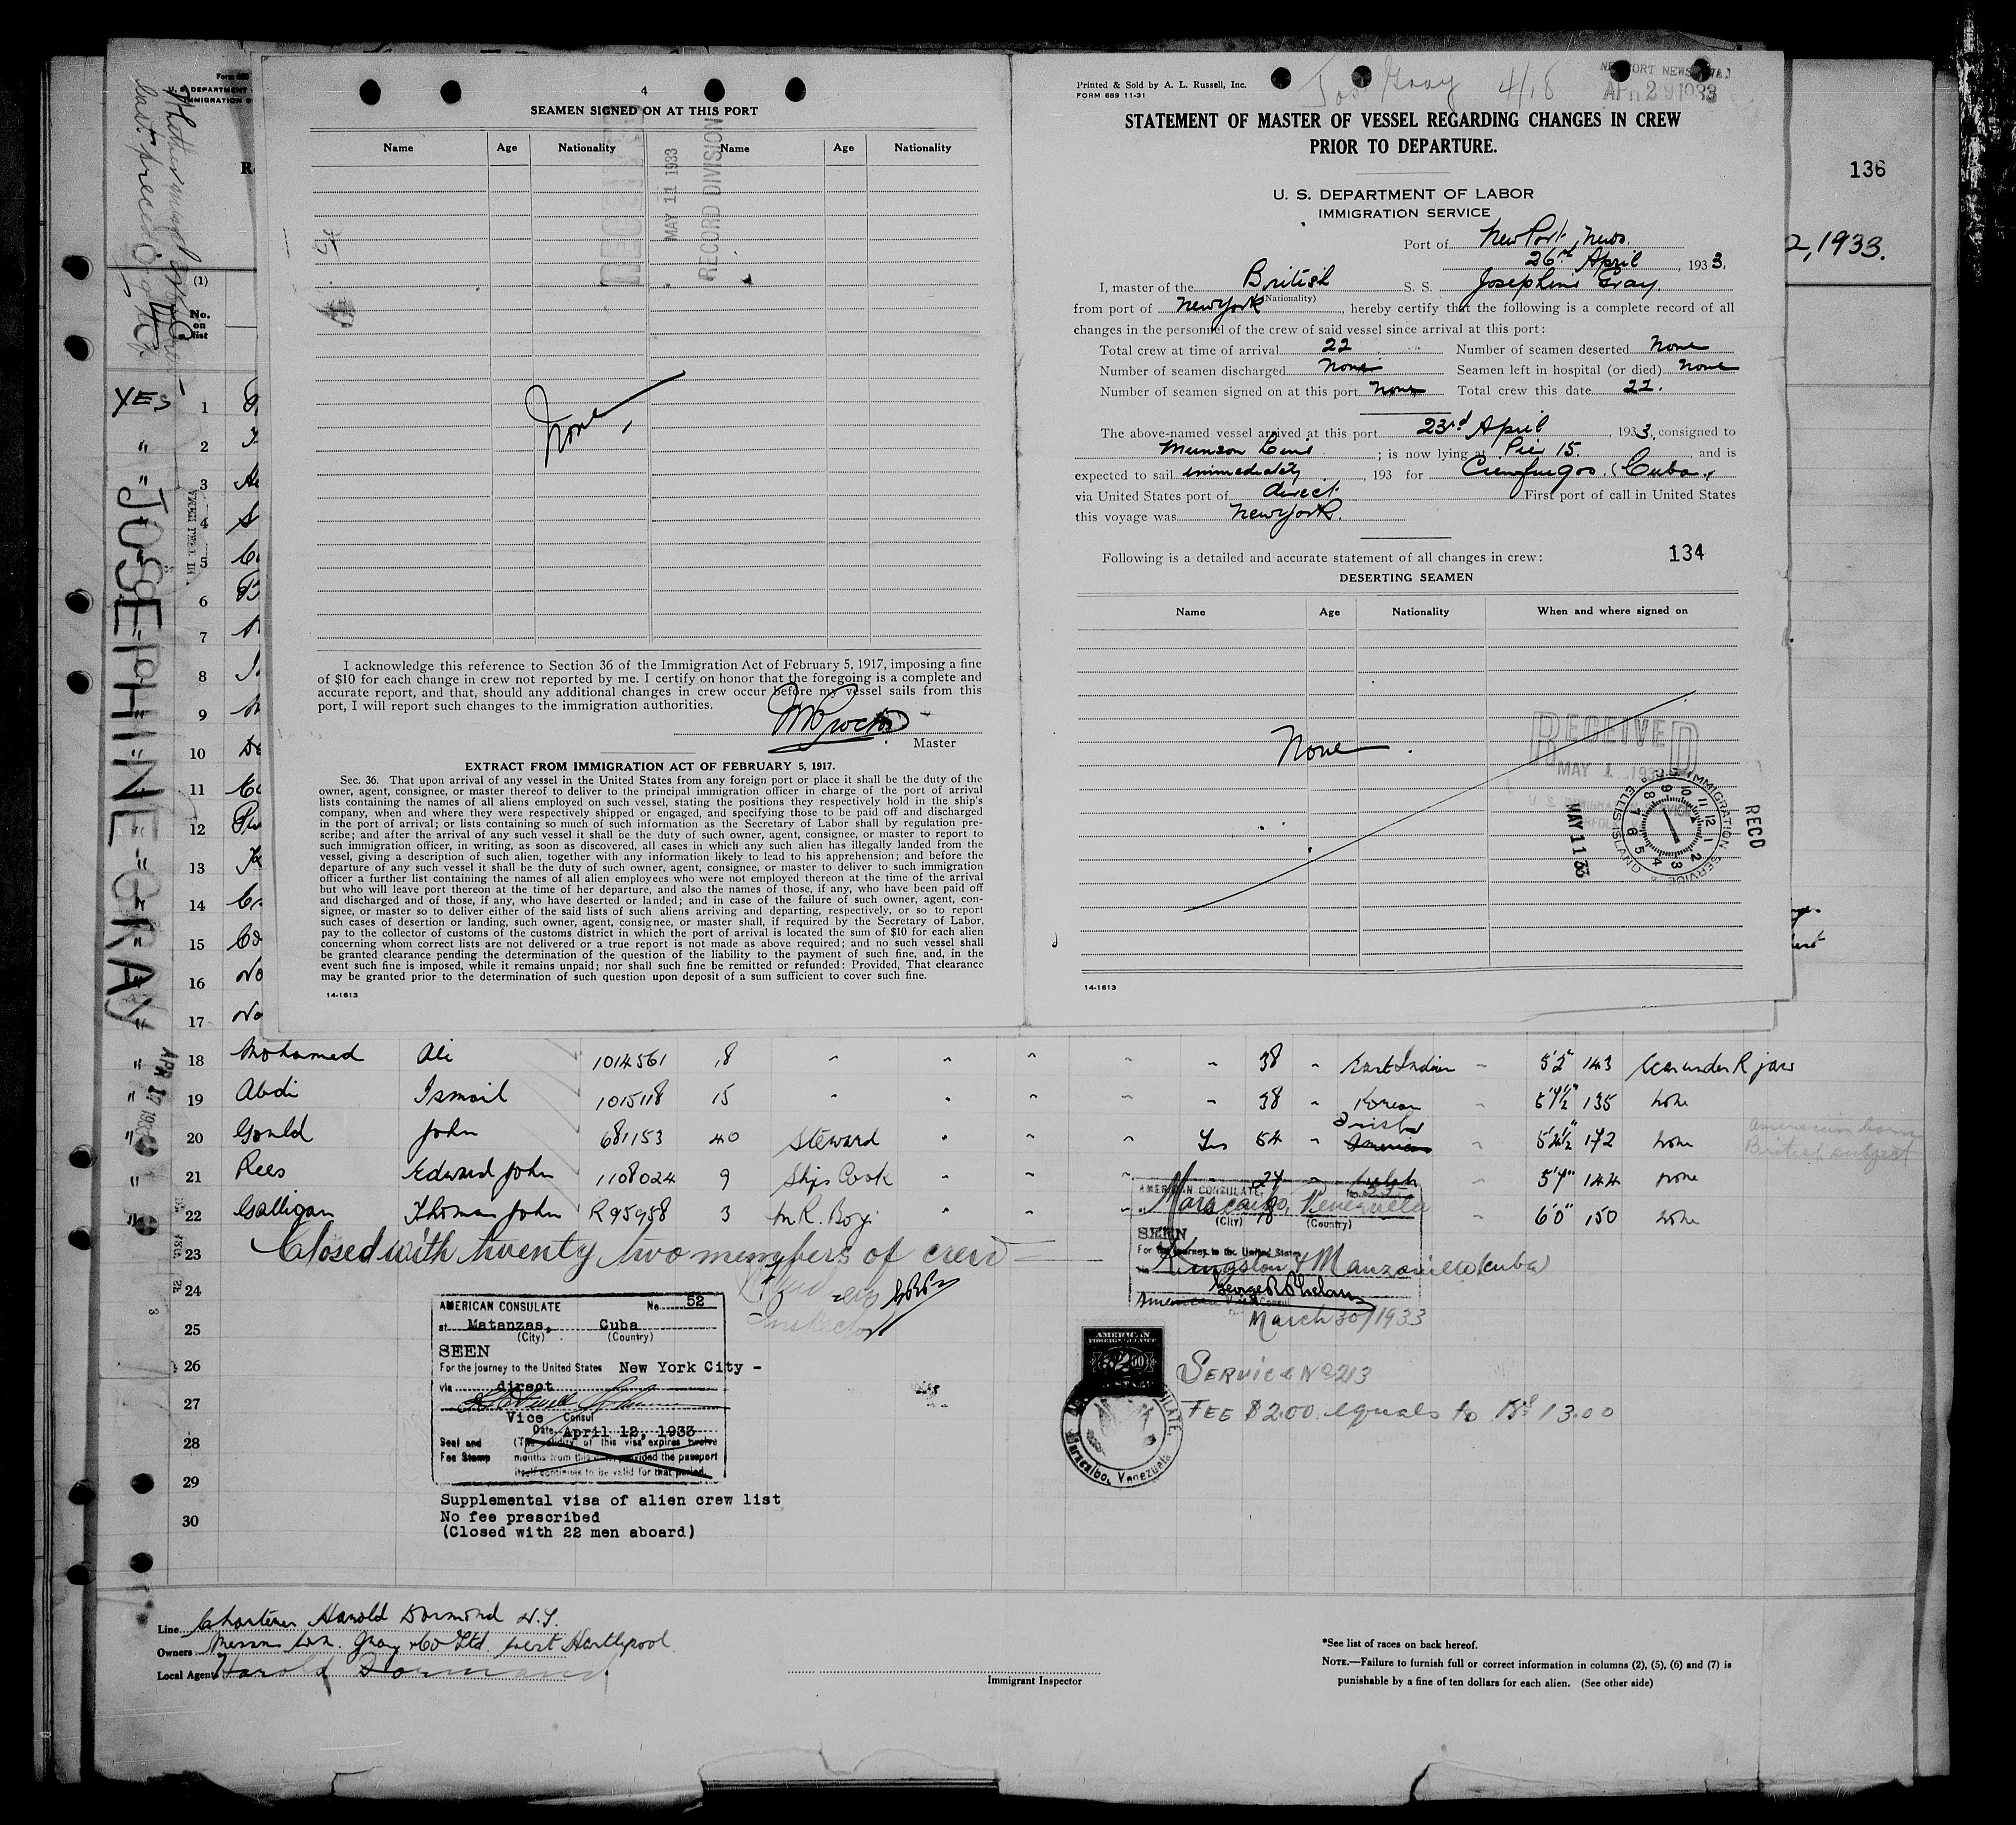 4
SEAMEN SIGNED ON AT THIS PORT
Name Age Nationality Name Age Nationality
RECEIVED
MAY 11 1933
RECORD DIVISION
None
I acknowledge this reference to Section 36 of the Immigration Act of February 5, 1917, imposing a fine
of $10 for each change in crew not reported by me. I certify on honor that the foregoing is a complete and
accurate report, and that, should any additional changes in crew occur before my vessel sails from this
port, I will report such changes to the immigration authorities.
Master
EXTRACT FROM IMMIGRATION ACT OF FEBRUARY 5, 1917.
Sec. 36. That upon arrival of any vessel in the United States from any foreign port or place it shall be the duty of the
owner, agent, consignee, or master thereof to deliver to the principal immigration officer in charge of the port of arrival
lists containing the names of all aliens employed on such vessel, stating the positions they respectively hold in the ship's
company, when and where they were respectively shipped or engaged, and specifying those to be paid off and discharged
in the port of arrival; or lists containing so much of such information as the Secretary of Labor shall by regulation pre-
scribe; and after the arrival of any such vessel it shall be the duty of such owner, agent, consignee, or master to report to
such immigration officer, in writing, as soon as discovered, all cases in which any such alien has illegally landed from the
vessel, giving a description of such alien, together with any information likely to lead to his apprehension; and before the
departure of any such vessel it shall be the duty of such owner, agent, consignee, or master to deliver to such immigration
officer a further list containing the names of all alien employees who were not employed thereon at the time of the arrival
but who will leave port thereon at the time of her departure, and also the names of those, if any, who have been paid off
and discharged and of those, if any, who have deserted or landed; and in case of the failure of such owner, agent, con-
signee, or master so to deliver either of the said lists of such aliens arriving and departing, respectively, or so to report
such cases of desertion or landing, such owner, agent, consignee, or master shall, if required by the Secretary of Labor,
pay to the collector of customs of the customs district in which the port of arrival is located the sum of $10 for each alien
concerning whom correct lists are not delivered or a true report is not made as above required; and no such vessel shall
be granted clearance pending the determination of the question of the liability to the payment of such fine, and, in the
event such fine is imposed, while it remains unpaid; nor shall such fine be remitted or refunded: Provided, That clearance
may be granted prior to the determination of such question upon deposit of a sum sufficient to cover such fine.
14-1613
Printed & Sold by A. L. Russell, Inc.
FORM 689 11-31
Jos Gray 4/18
NEWPORT NEWS, VA.
APR 29 1933
STATEMENT OF MASTER OF VESSEL REGARDING CHANGES IN CREW
PRIOR TO DEPARTURE.
U. S. DEPARTMENT OF LABOR
IMMIGRATION SERVICE
Port of NewPort News.
26th April, 1933.
I, master of the British S. S. Josephine Gray
(Nationality)
from port of New York, hereby certify that the following is a complete record of all
changes in the personnel of the crew of said vessel since arrival at this port:
Total crew at time of arrival 22 Number of seamen deserted None
Number of seamen discharged None Seamen left in hospital (or died) None
Number of seamen signed on at this port None Total crew this date 22.
The above-named vessel arrived at this port 23rd April, 1933, consigned to
Munson Line; is now lying at Pier 15, and is
expected to sail immediately, 193 for Cienfuegos. (Cuba.)
via United States port of direct First port of call in United States
this voyage was New York.
Following is a detailed and accurate statement of all changes in crew: 134
DESERTING SEAMEN
Name Age Nationality When and where signed on
None
RECEIVED
MAY 1 1933
MAY 11 33
U.S. IMMIGRATION SERVICE
ELLIS ISLAND
RECD
14-1613
136
2, 1933.
Form 680
U. S. DEPARTMENT
IMMIGRATION S
(1)
No. on list
YES
JOSEPHINE=GRAY
APR 17 1933
1
2
3
4
5
6
7
8
9
10
11
12
13
14
15
16
17
18 Mohamed Ali 1014561 18 " " " " " 38 " East Indian " 5'2" 143 Scar under R jaw
19 Abdi Ismail 1015118 15 " " " " " 38 " Korean " 5'7½" 135 none
20 Gould John 681153 40 Steward " " " Yes 54 " American Irish " 5'2½" 172 none American born British subject
21 Rees Edward John 1108024 9 Ships Cook " " " 27 " Welsh " 5'7" 144 none
22 Galligan Thomas John R95958 3 M.R. Boy " " " 18 " 6'0" 150 none
23 Closed with twenty two members of crew
24
25
26
27
28
29
30
AMERICAN CONSULATE No. 52
at Matanzas, Cuba
(City) (Country)
SEEN
For the journey to the United States New York City -
via direct
Vice Consul
Date April 12, 1933
Seal and Fee Stamp
(The validity of this visa expires twelve
months from this date provided the passport
itself continues to be valid for that period.
Supplemental visa of alien crew list
No fee prescribed
(Closed with 22 men aboard)
Inspector
AMERICAN CONSULATE,
at Maracaibo, Venezuela
(City) (Country)
SEEN
For the journey to the United States
via Kingston & Manzanillo (Cuba)
George R Phelan
American Vice Consul
March 30/1933
AMERICAN
$2.00
Maracaibo, Venezuela
SERVICE No 213
FEE $2.00 equals to Bs 13.00
Line Charterer Harold Dormond N.Y.
Owners Messrs Wm. Gray & Co Ltd. West Hartlepool
Local Agents Harold Dormand
Immigrant Inspector
*See list of races on back hereof.
NOTE.—Failure to furnish full or correct information in columns (2), (5), (6) and (7) is
punishable by a fine of ten dollars for each alien. (See other side)